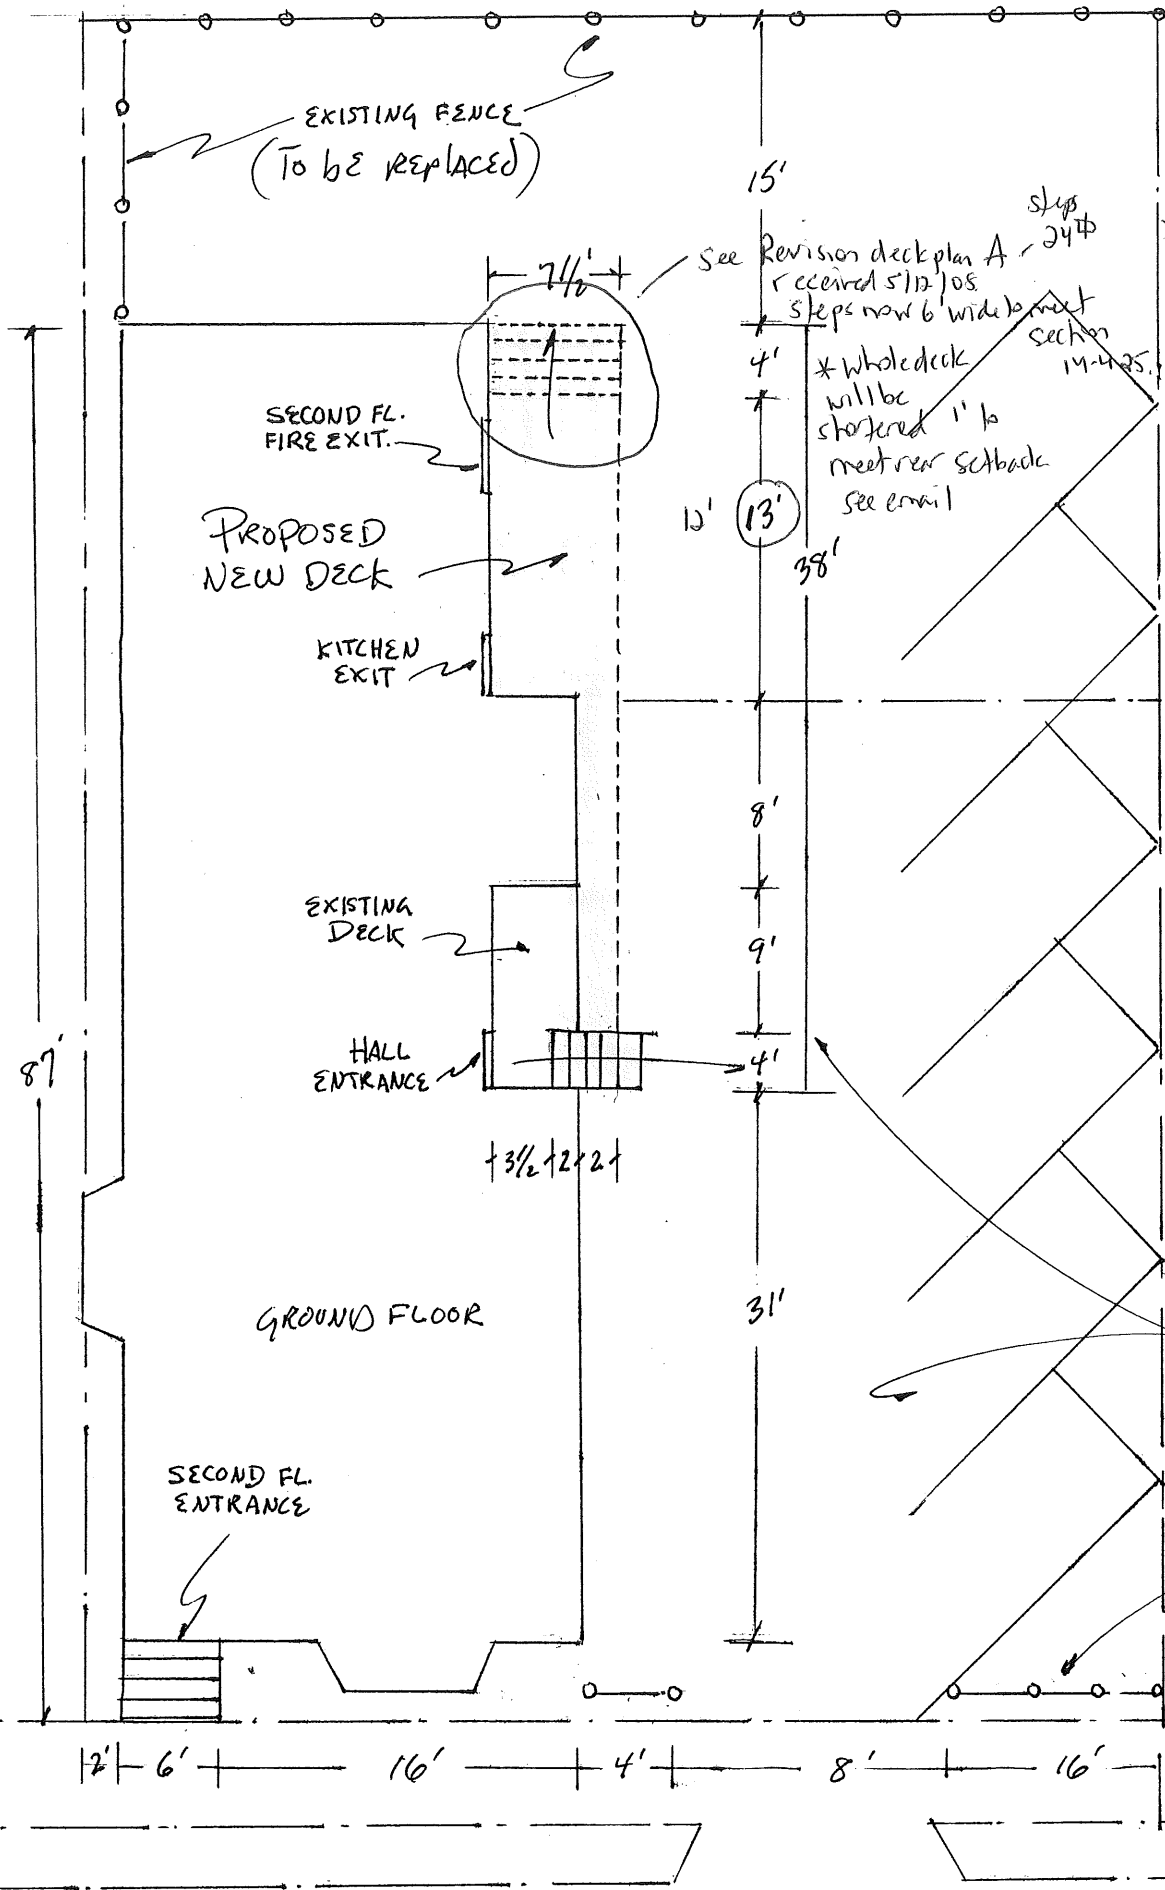 EXISTING FENCE
(To bE REPlACED)
15'
steps
24"
7 1/2'
see Revision deck plan A
received 5/12/08
steps now 6' wide to meet
section
14-425.
4'
* whole deck
will be
shortened 1' to
meet rear setback
see email
SECOND FL.
FIRE EXIT.
PROPOSED
NEW DECK
12'
13'
38'
KITCHEN
EXIT
8'
EXISTING
DECK
9'
87'
HALL
ENTRANCE
4'
3 1/2 2 2
31'
GROUND FLOOR
SECOND FL.
ENTRANCE
2' 6' 16' 4' 8' 16'